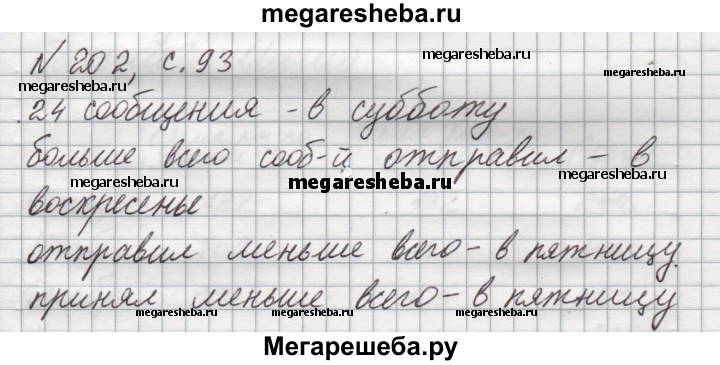 megaresheba.ru
№ 202, с. 93
megaresheba.ru
24 сообщения - в субботу
больше всего сооб-й отправил - в
megaresheba.ru
megaresheba.ru
megaresheba.ru
воскресенье
отправил меньше всего - в пятницу
принял меньше всего - в пятницу
megaresheba.ru
megaresheba.ru
Мегарешеба.ру